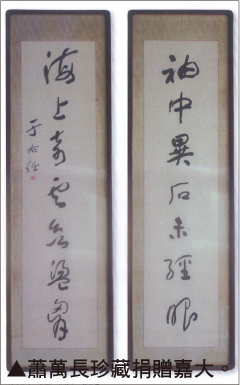 袖中異石未經眼
海上奇雲欲盪胸
于右任
▲蕭萬長珍藏捐贈嘉大。